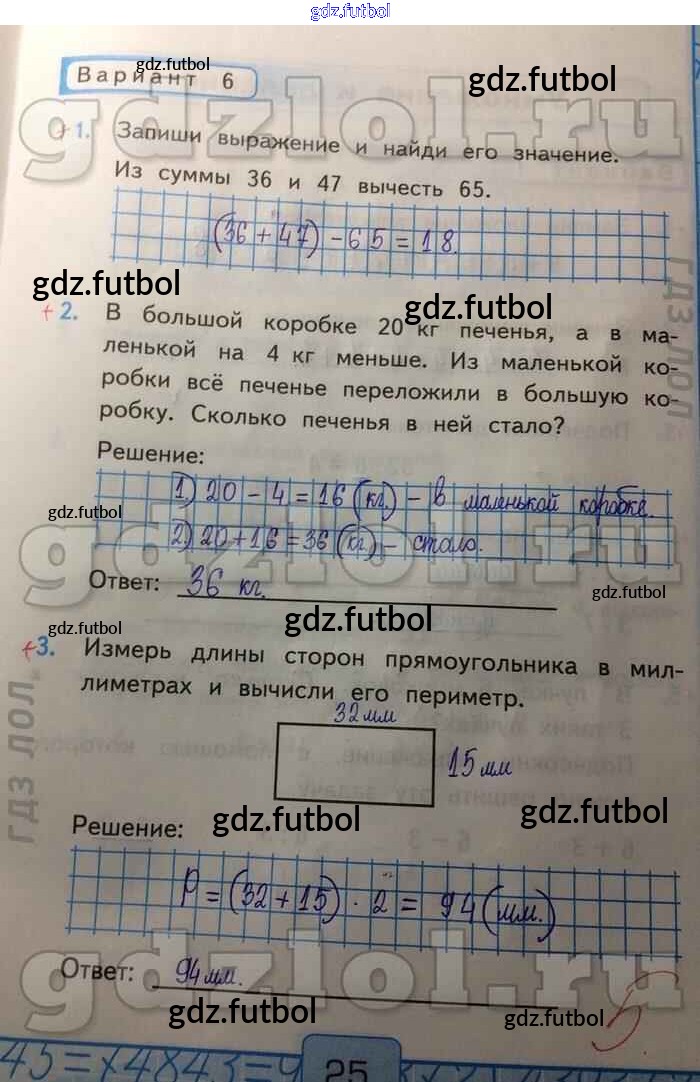 gdz.futbol
Вариант 6
gdz.futbol
gdz.futbol
gdzlol.ru
+ 1. Запиши выражение и найди его значение.
Из суммы 36 и 47 вычесть 65.
(36 + 47) - 65 = 18.
gdz.futbol
gdz.futbol
ГДЗ ЛОЛ
+ 2. В большой коробке 20 кг печенья, а в ма-
ленькой на 4 кг меньше. Из маленькой ко-
робки всё печенье переложили в большую ко-
робку. Сколько печенья в ней стало?
Решение:
1) 20 - 4 = 16 (кг.) - в маленькой коробке.
gdz.futbol
2) 20 + 16 = 36 (кг) - стало.
gdzlol.ru
Ответ: 36 кг.
gdz.futbol
gdz.futbol
gdz.futbol
+ 3. Измерь длины сторон прямоугольника в мил-
лиметрах и вычисли его периметр.
32 мм
15 мм
ГДЗ ЛОЛ
gdz.futbol
gdz.futbol
Решение:
P = (32 + 15) · 2 = 94 (мм.)
gdzlol.ru
Ответ: 94 мм.
gdz.futbol
gdz.futbol
5
25